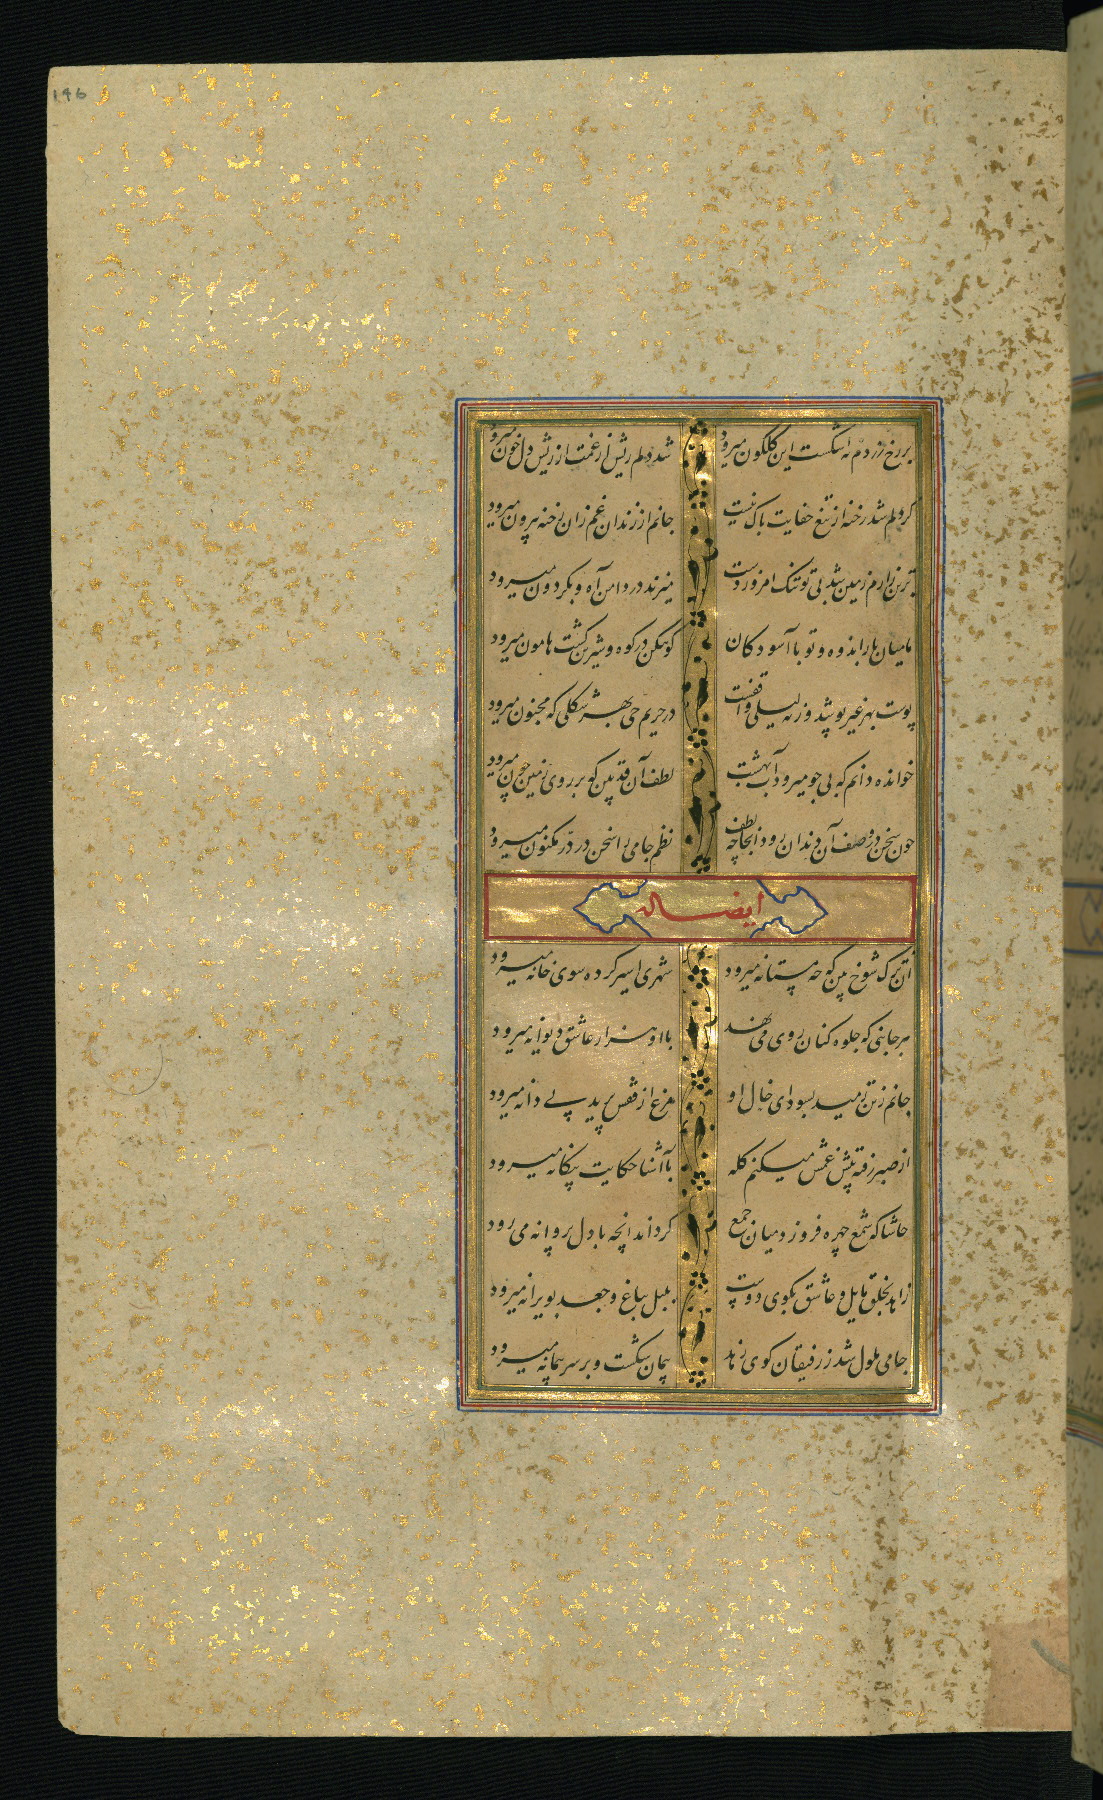 ۱۴۶
بر رخ زردم نه اشکست این که گلگون میرود شد دلم ریش از غمت از ریش دل خون میرود
گر دلم شد رخنه از تیغ جفایت باک نیست جانم از زندان غم زان رخنه بیرون میرود
بر من زارم زمین شد بی تو تنک امروز دست میزند در دامن آه و بگردون میرود
ما میان بار اندوه و تو با آسودکان کوهکن در کوه و شیرین گشت هامون میرود
پوست بهر غیر پوشد ورنه لیلی واقفست در حریم حی بهر شکلی که مجنون میرود
خوانده دانم که بی جو میرود آب بهشت لطف آن قد بین که بر روی زمین چون میرود
چون سخن در وصف آن دندان رود ز انجا چه لطف نظم جامی را سخن در درّ مکنون میرود
ایضا له
آن ترک شوخ بین که چه مستانه میرود شهری اسیر کرده سوی خانه میرود
هر جانبی که جلوه کنان روی می نهد با او هزار عاشق دیوانه میرود
جانم ز تن رمید بسودای خال او مرغ از قفس پرید پی دانه میرود
از صبر رفته پیش غمش میکنم کله با آشنا حکایت بیکانه میرود
حاشا که شمع چهره فروزد میان جمع گر داند آنچه با دل پروانه می رود
زاهد بخلد مایل و عاشق بکوی دوست بلبل بباغ و جغد بویرانه میرود
جامی ملول شد ز رفیقان کوی زهد پیمان شکست و بر سر پیمانه میرود